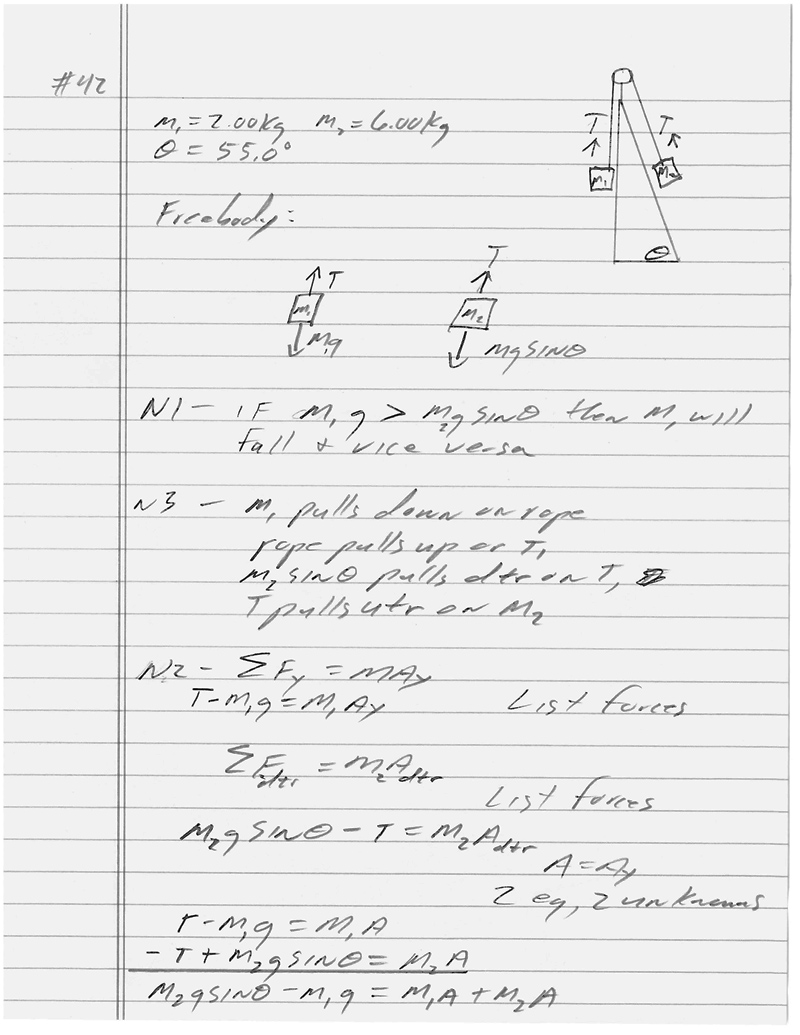 #42
m₁ = 2.00kg m₂ = 6.00kg
θ = 55.0°
T T
m₁ m₂
θ
Freebody:
T T
m₁ m₂
m₁g mgsinθ
N1 - IF m₁g > m₂gsinθ then m₁ will
Fall & vice versa
N3 - m₁ pulls down on rope
rope pulls up on T₁
m₂sinθ pulls dtr on T,
T pulls utr on M₂
N2 - ΣFy = MAy
T-m₁g = M₁Ay List forces
ΣFdtr = m₂Adtr
List forces
M₂gsinθ - T = M₂Adtr
A = Ay
2 eq, 2 unknowns
T - M₁g = M₁A
- T + M₂gsinθ = M₂A
M₂gsinθ - M₁g = M₁A + M₂A